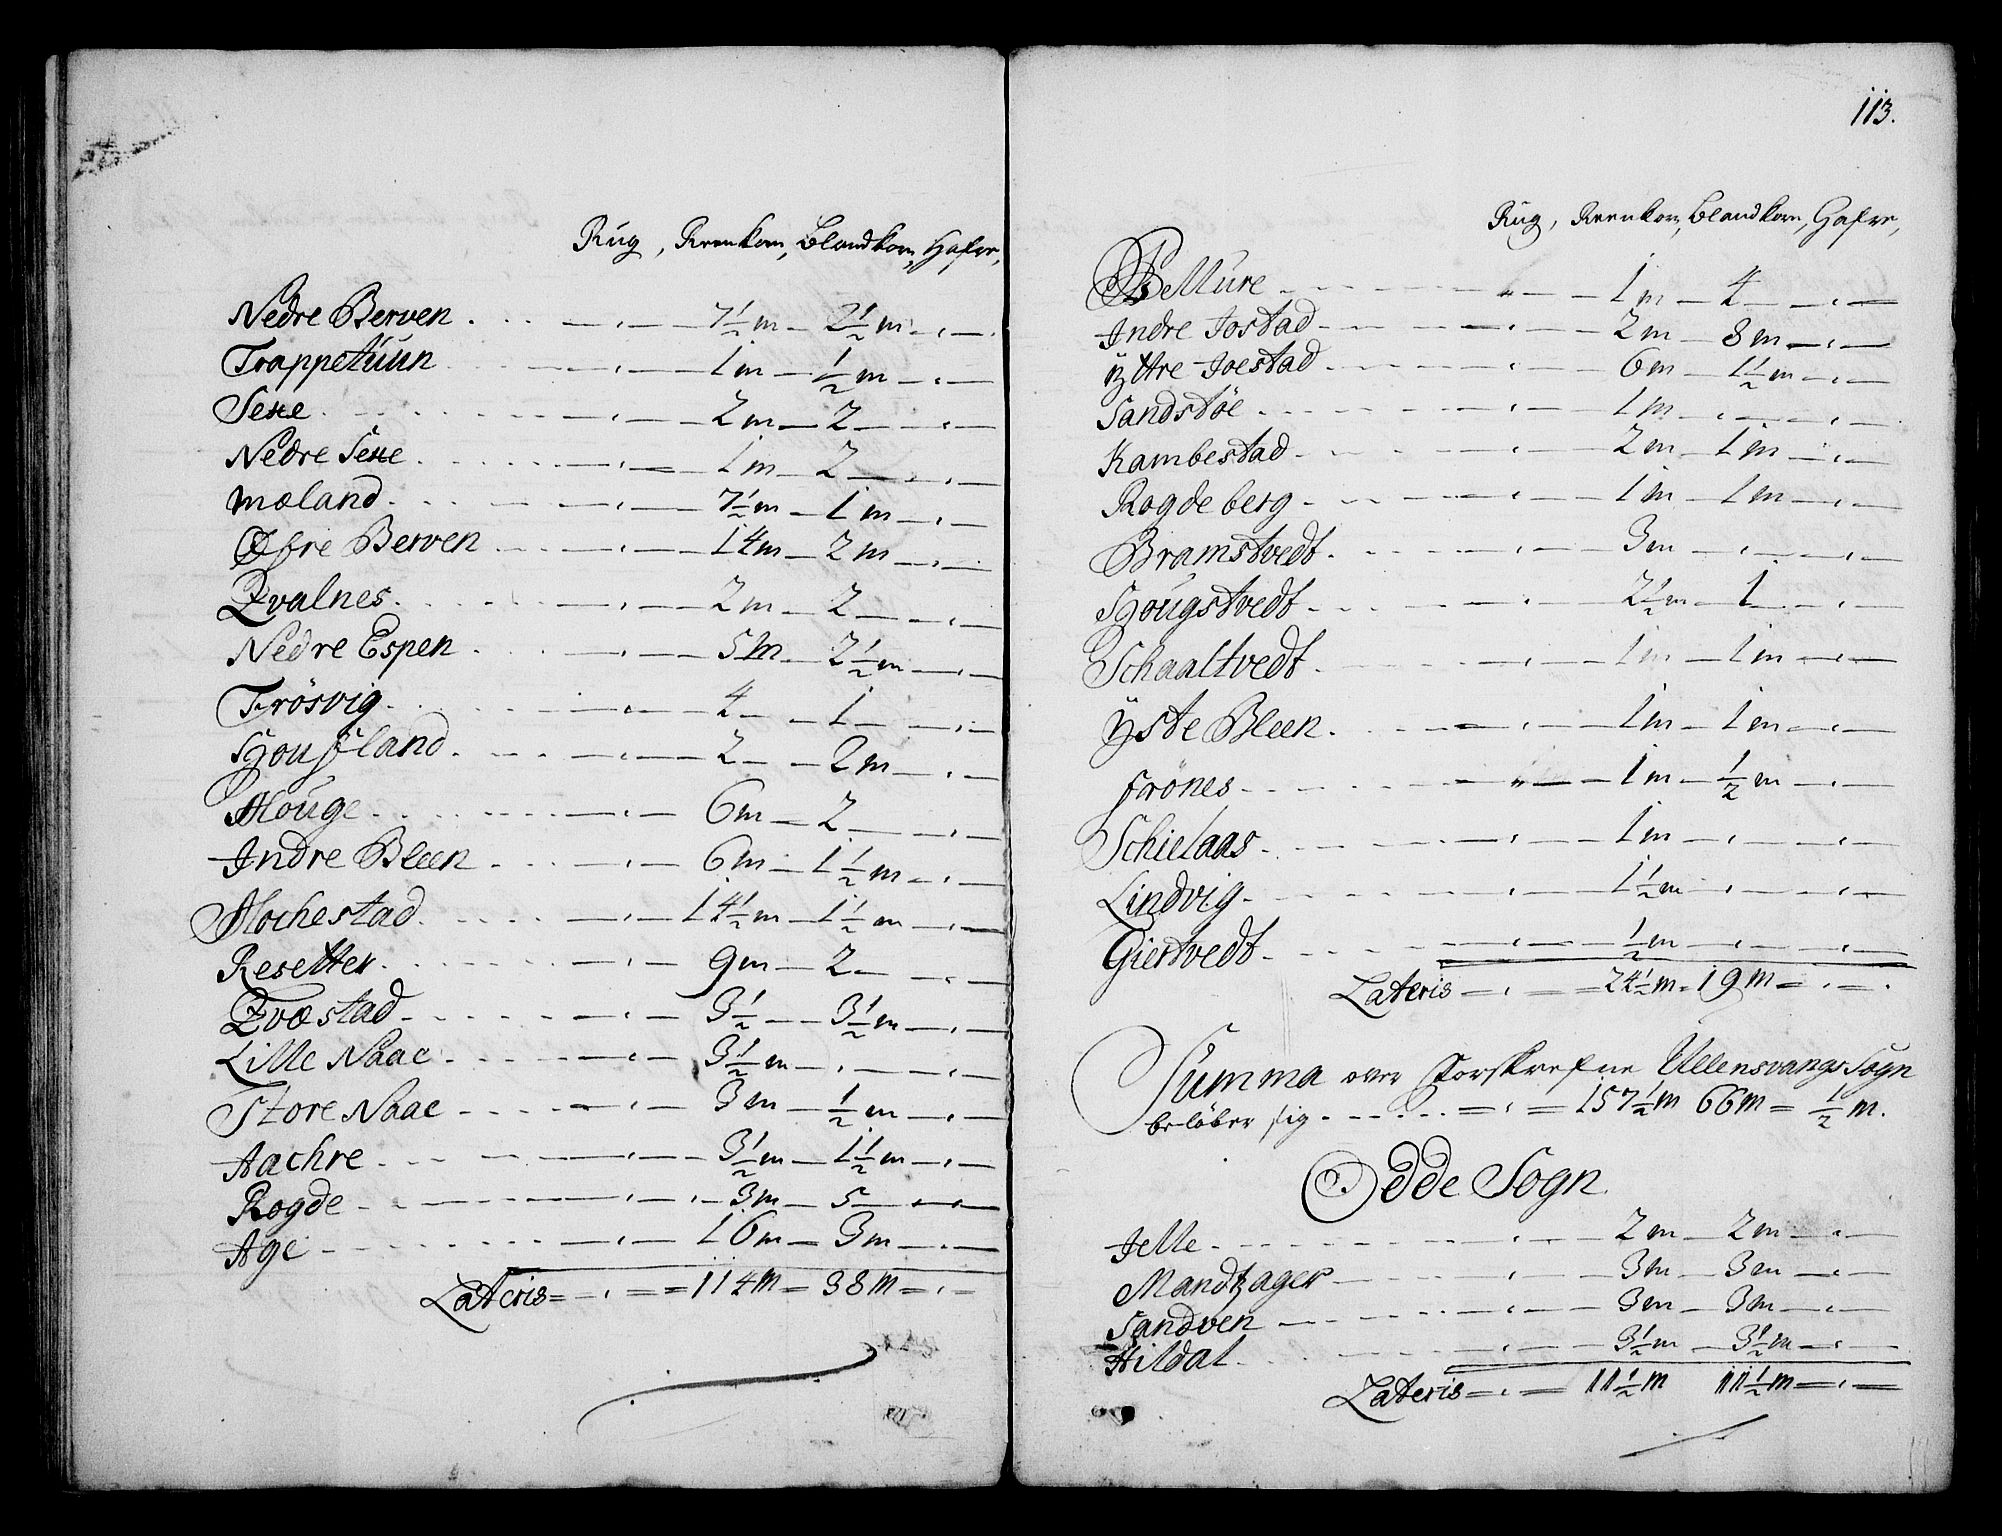 Rug, Reenkorn, Blandkorn, Hafre,
Nedre Berven 7½m 2½m
Trappetuun 1m ½m
Sexe 2m 2
Nedre Sexe 1m 2
Mæland 7½m 1m
Øfre Berven 14m 2m
Qvalnes 2m 2
Nedre Espen 5m 2½m
Frösvig 4 1
Houfland 2 2m
Houge 6m 2
Indre Bleen 6m 1½m
Hochestad 14½m 1½m
Resetter 9m 2
Qvæstad 3½ 3½m
Lille Naae 3½m
Store Naae 3m ½m
Aachre 3½m 1½m
Rogde 3m 5
Age 16m 3m
Lateris 114m 38m
113.
Rug, Reenkorn, Blandkorn, Hafre,
Bellure 1m 4
Indre Jostad 2m 8m
Yttre Joestad 6m 1½m
Sandstöe 1m
Kambestad 2m 1m
Rogdeberg 1m 1m
Bramstvedt 3m
Hougstvedt 2½m 1
Schaaltvedt 1m 1m
Yste Bleen 1m 1m
Frönes 1m ½m
Schielaas 1m
Lindvig 1½m
Giertvedt ½m
Lateris 24½m 19m
Summa over Forskrefne Ullensvangs Sogn
belöber sig 157½m 66m ½m.
Odde Sogn
Jelle 2m 2m
Mandtzager 3m 3m
Sandven 3m 3m
Hildal 3½m 3½m
Lateris 11½m 11½m